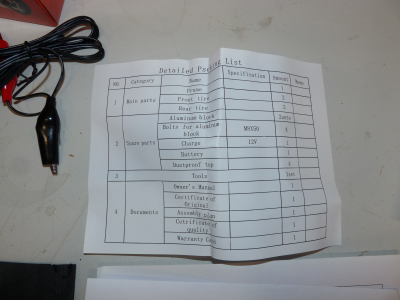 Detailed Packing List
No Category Name Specification Amount Memo
1 Main parts Frame 1
Front tire 1
Rear tire 2
2 Spare parts Aluminum block 2sets
Bolts for aluminum
block M8X50 4
Charge 12V 1
Battery 1
Dustproof cap 4
3 Tools 1set
4 Documents Owner's Manual 1
Certificate of
Original 1
Assembly plan 1
Cetrificate of
quality 1
Warranty Card 1